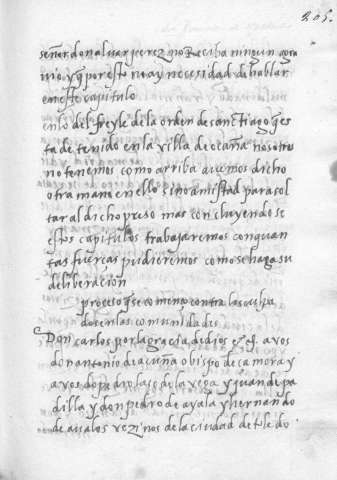 205.
señor don aluar perez no Reciba ningun agra
uio y q̃ por esto no ay necesidad de hablar
en este capitulo
en lo del freyle de la orden de sanctiago q̃ es
ta detenido en la villa de ocaña nosotros
no tenemos como arriba auemos dicho
otra mano en ello sino amistad para sol
tar al dicho preso mas concluyendo se
estos capitulos trabajaremos con quan
tas fuerças pudieremos como se haga su
deliberacion
proceso q̃ se començo contra los culpa
dos en las comunidades
Don carlos por la gracia de dios &c. a vos
don antonio de acuña obispo de çamora y
a vos don pº laso de la vega y juan de pa
dilla y don pedro de ayala y hernando
de aualos vezinos de la ciudad de toledo